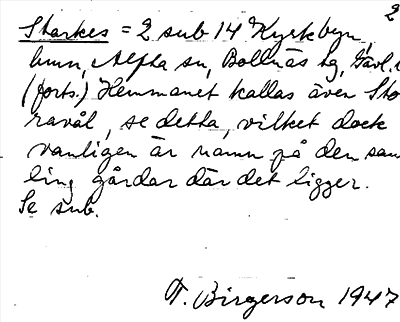 2
Starkes = 2 sub 14 Kyrkbyn,
hmn, Alfta sn, Bollnäs tg, Gävl.
(forts.) Hemmanet kallas även Sto
ravål, se detta, vilket dock
vanligen är namn på den sam
ling gårdar där det ligger.
Se sub.
T. Birgerson 1947